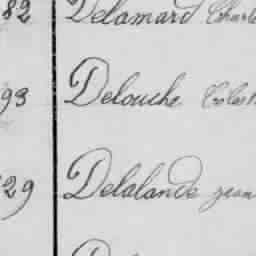 82 Delamard Charle
93 Delouche Celest
29 Delalande jean